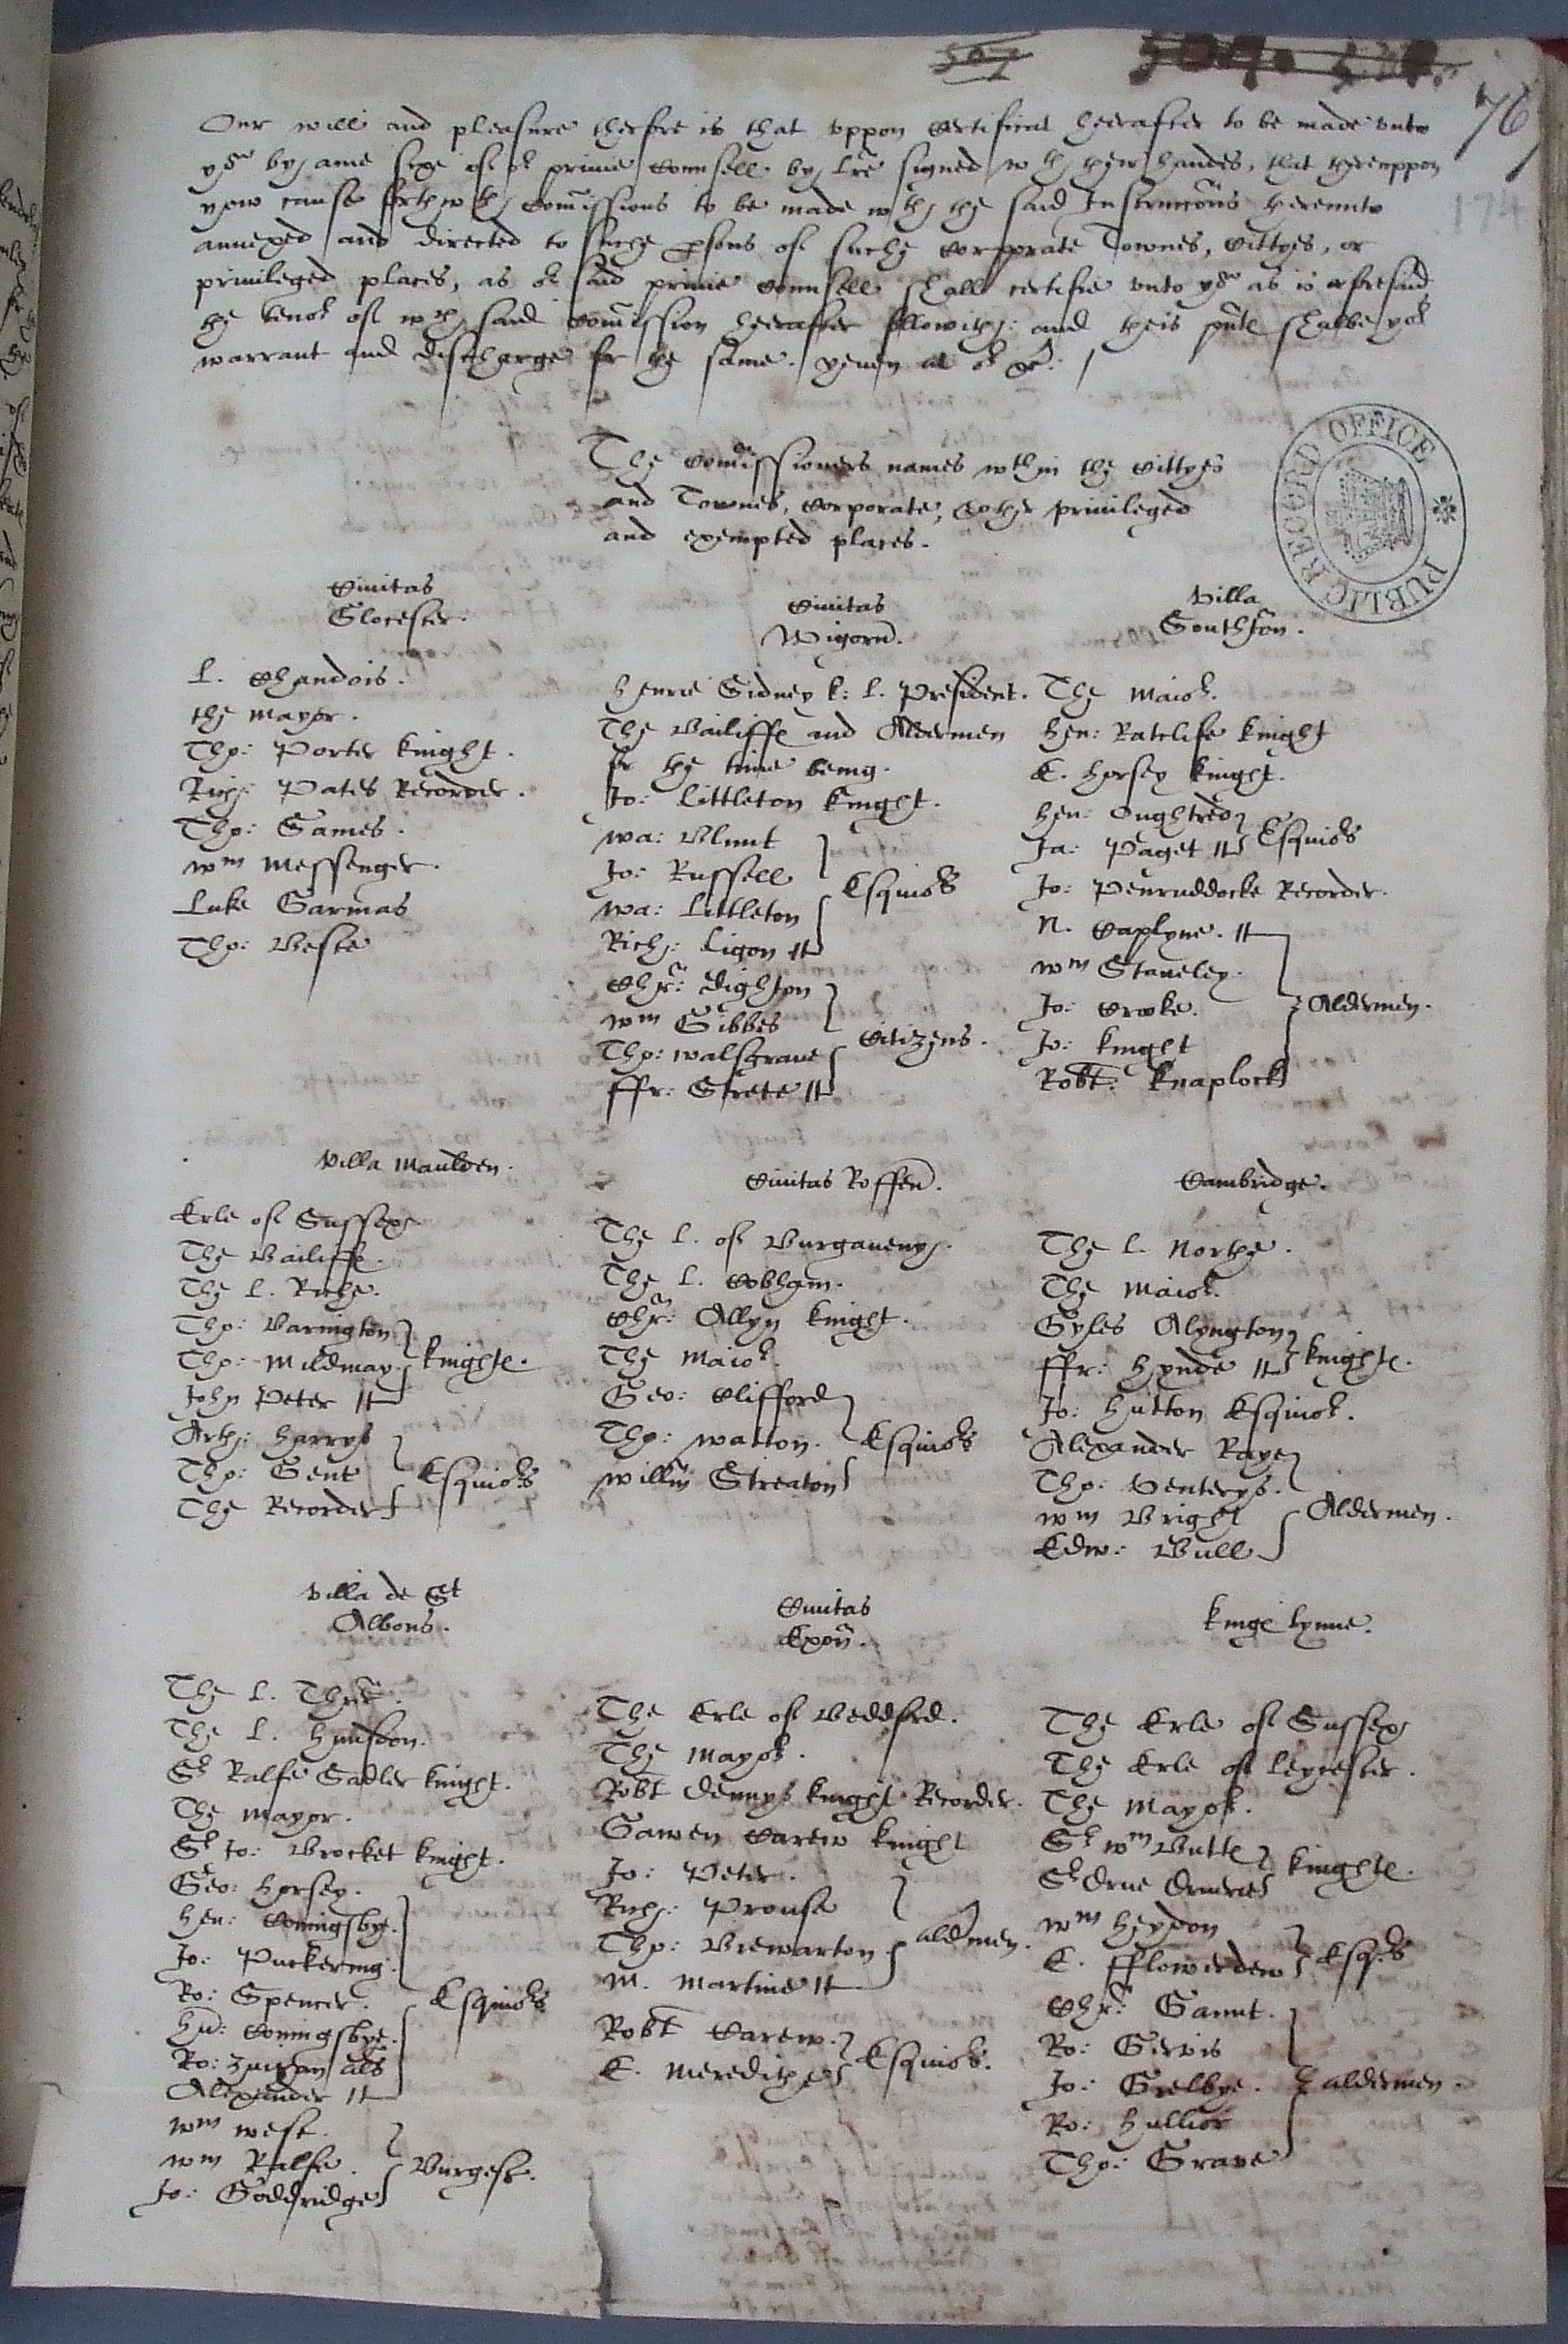 507
76
174
Our will and pleasure therfore is that vppon certificat heerafter to be made vnto
you by anie sixe of or privie counsell by lre signed wth their handes, that therevppon
yow cause forthwth comissions to be made wth the said Instruccons herevnto
annexed and directed to suche psons of suche corporate Townes, Cittyes, or
priuileged places, as or said privie counsell shall certifie vnto you as is aforesaid
the tenor of wch said comission heerafter followith: and theis pnte shalbe yor
warrant and discharge for the same. yeuen at or &c.
The Comissioners names wthin the Cittyes
and Townes, Corporate, & other priuileged
and exempted places.
PUBLIC RECORD OFFICE
Ciuitas
Glocester.
L. Chandois.
the mayor.
Tho: Porter knight.
Rich: Pates Recorder.
Tho: Games.
Wm Messenger.
Luke Garnias
Tho: Veste
Ciuitas
Wigorn.
Henrie Sidney k: L. President.
The Bailiffe and Aldermen
for the time being.
Jo: Littleton knight.
Wa: Blunt
Jo: Russell
Wa: Littleton
Rich: Ligon
Esquiors
Chr: Dighton
Wm Gibbes
Tho: Walsgraue
ffr: Strete
Citizens.
Villa
Southton.
The Maior.
Hen: Ratclife knight
E. Horsey knight.
Hen: Oughtred
Ja: Paget
Esquiors
Jo: Penruddocke Recorder.
N. Caplyne.
Wm Staueley.
Jo: Croke.
Jo: knight
Robt: knaplock
Aldermen.
Villa Maulden.
Erle of Sussex
The Bailiffe.
The L. Riche.
Tho: Barington
Tho: Mildmay.
John Peter
knighte.
Arth: Harrys
Tho: Gent
The Recorder
Esquiors
Ciuitas Roffen.
The L. of Burgaueny.
The L. Cobham.
Chr: Allyn knight.
The Maior.
Geo: Clifford
Tho: Watton.
Willm Streaton
Esquiors
Cambridge.
The L. Northe.
The Maior.
Gyles Alyngton
ffr: Hynde
knighte.
Jo: Hutton Esquior.
Alexander Raye
Tho: Ventrys.
Wm Bright
Edw: Bull
Aldermen.
Villa de St
Albons.
The L. Thrr.
The L. Hunsdon.
Sr Ralfe Sadler knight.
The mayor.
Sr Jo: Brocket knight.
Geo: Horsey.
Hen: Coningsby.
Jo: Puckering.
Ro: Spencer.
Hu: Coningsbye.
Ro: als
Alexander
Esquiors
Wm West.
Wm Ralfe.
Jo: Goddridge
Burgess.
Ciuitas
Exon.
The Erle of Beddford.
The mayor.
Robt Dennys knight Recorder.
Gawen Carew knight
Jo: Peter.
Rich: Prouse
Tho: Brewarton
M. Martine
aldmen.
Robt Carew.
E. Meredithe
Esquiors.
kinge Lynne.
The Erle of Sussex
The Erle of Leycester.
The mayor.
Sr Wm Butte
Sr Drue Drurie
knighte.
Wm Heydon
E. fflowerdew
Esqrs
Chr: Gaunt.
Ro: Gervis
Jo: Grelbye.
Ro: Hullior
Tho: Grave
aldermen.